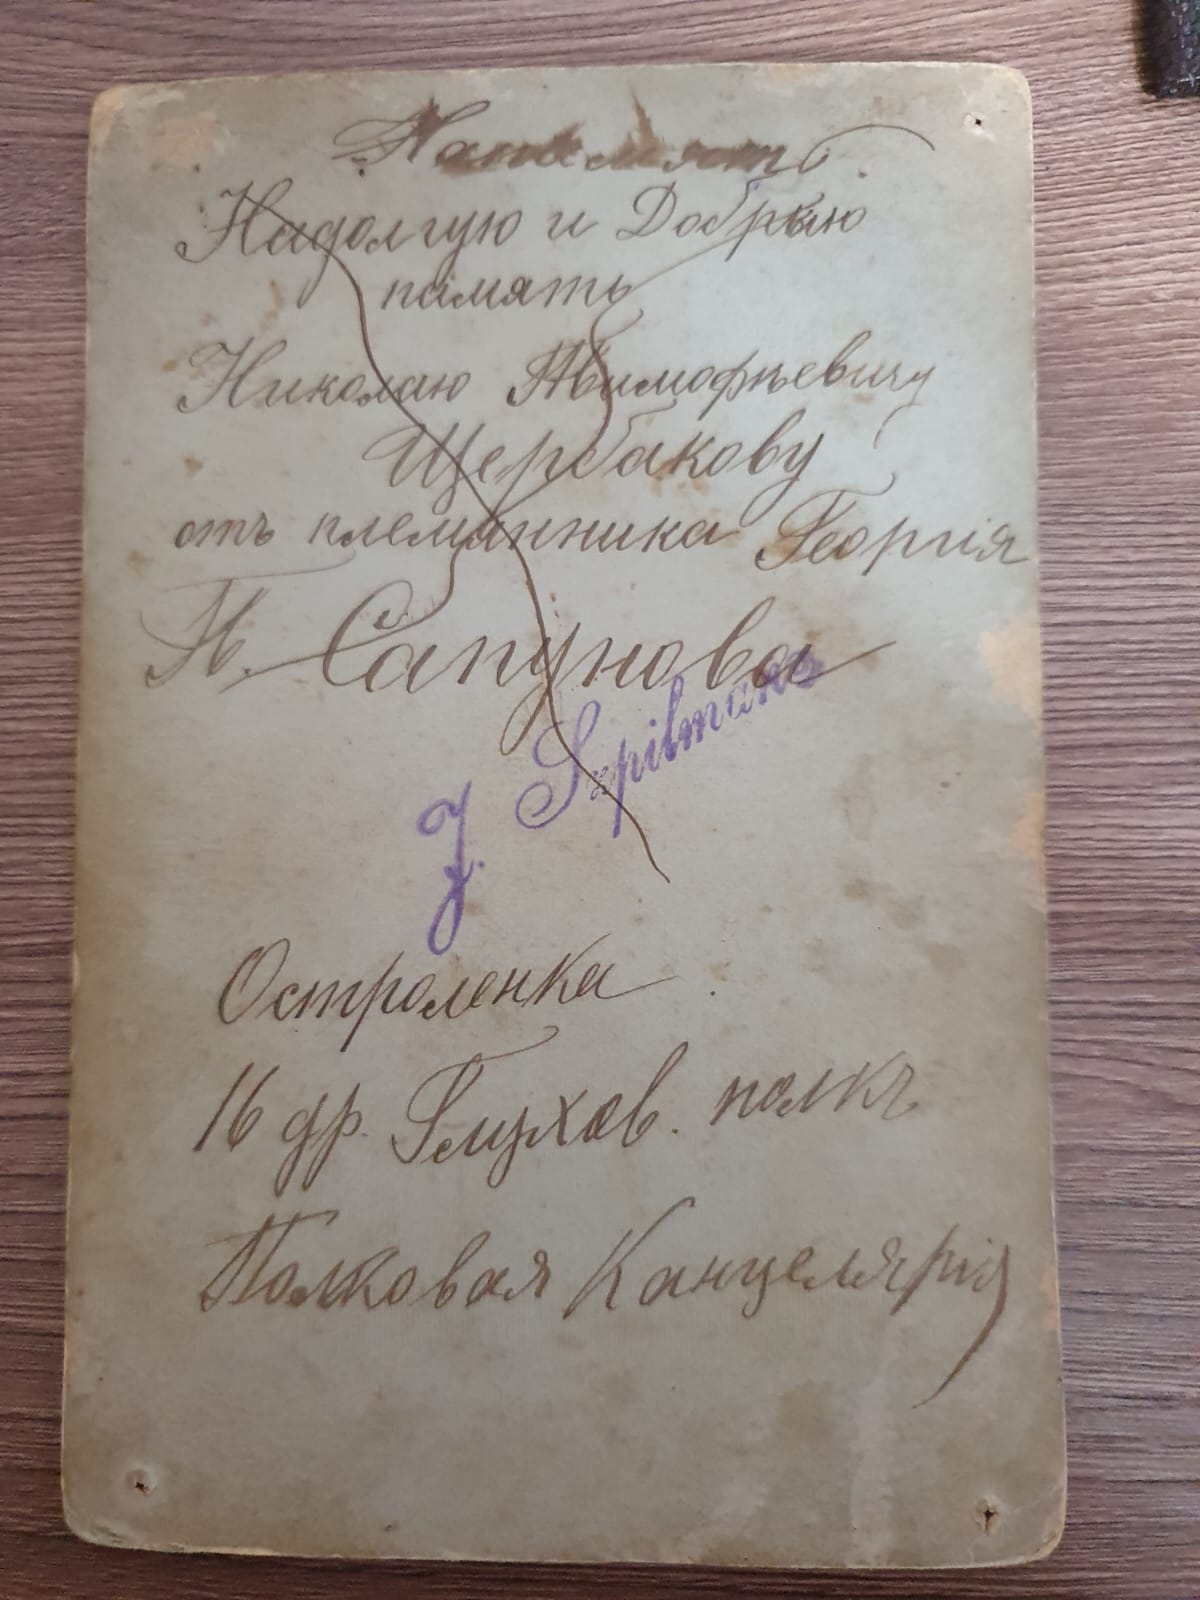 На память
Надолгую и Добрую
память
Николаю
Щербакову
отъ племянника Георгія
Сапунова
J. Szpilman
Остроленка
16 др. Глухов. полкъ
Полковая Канцелярія